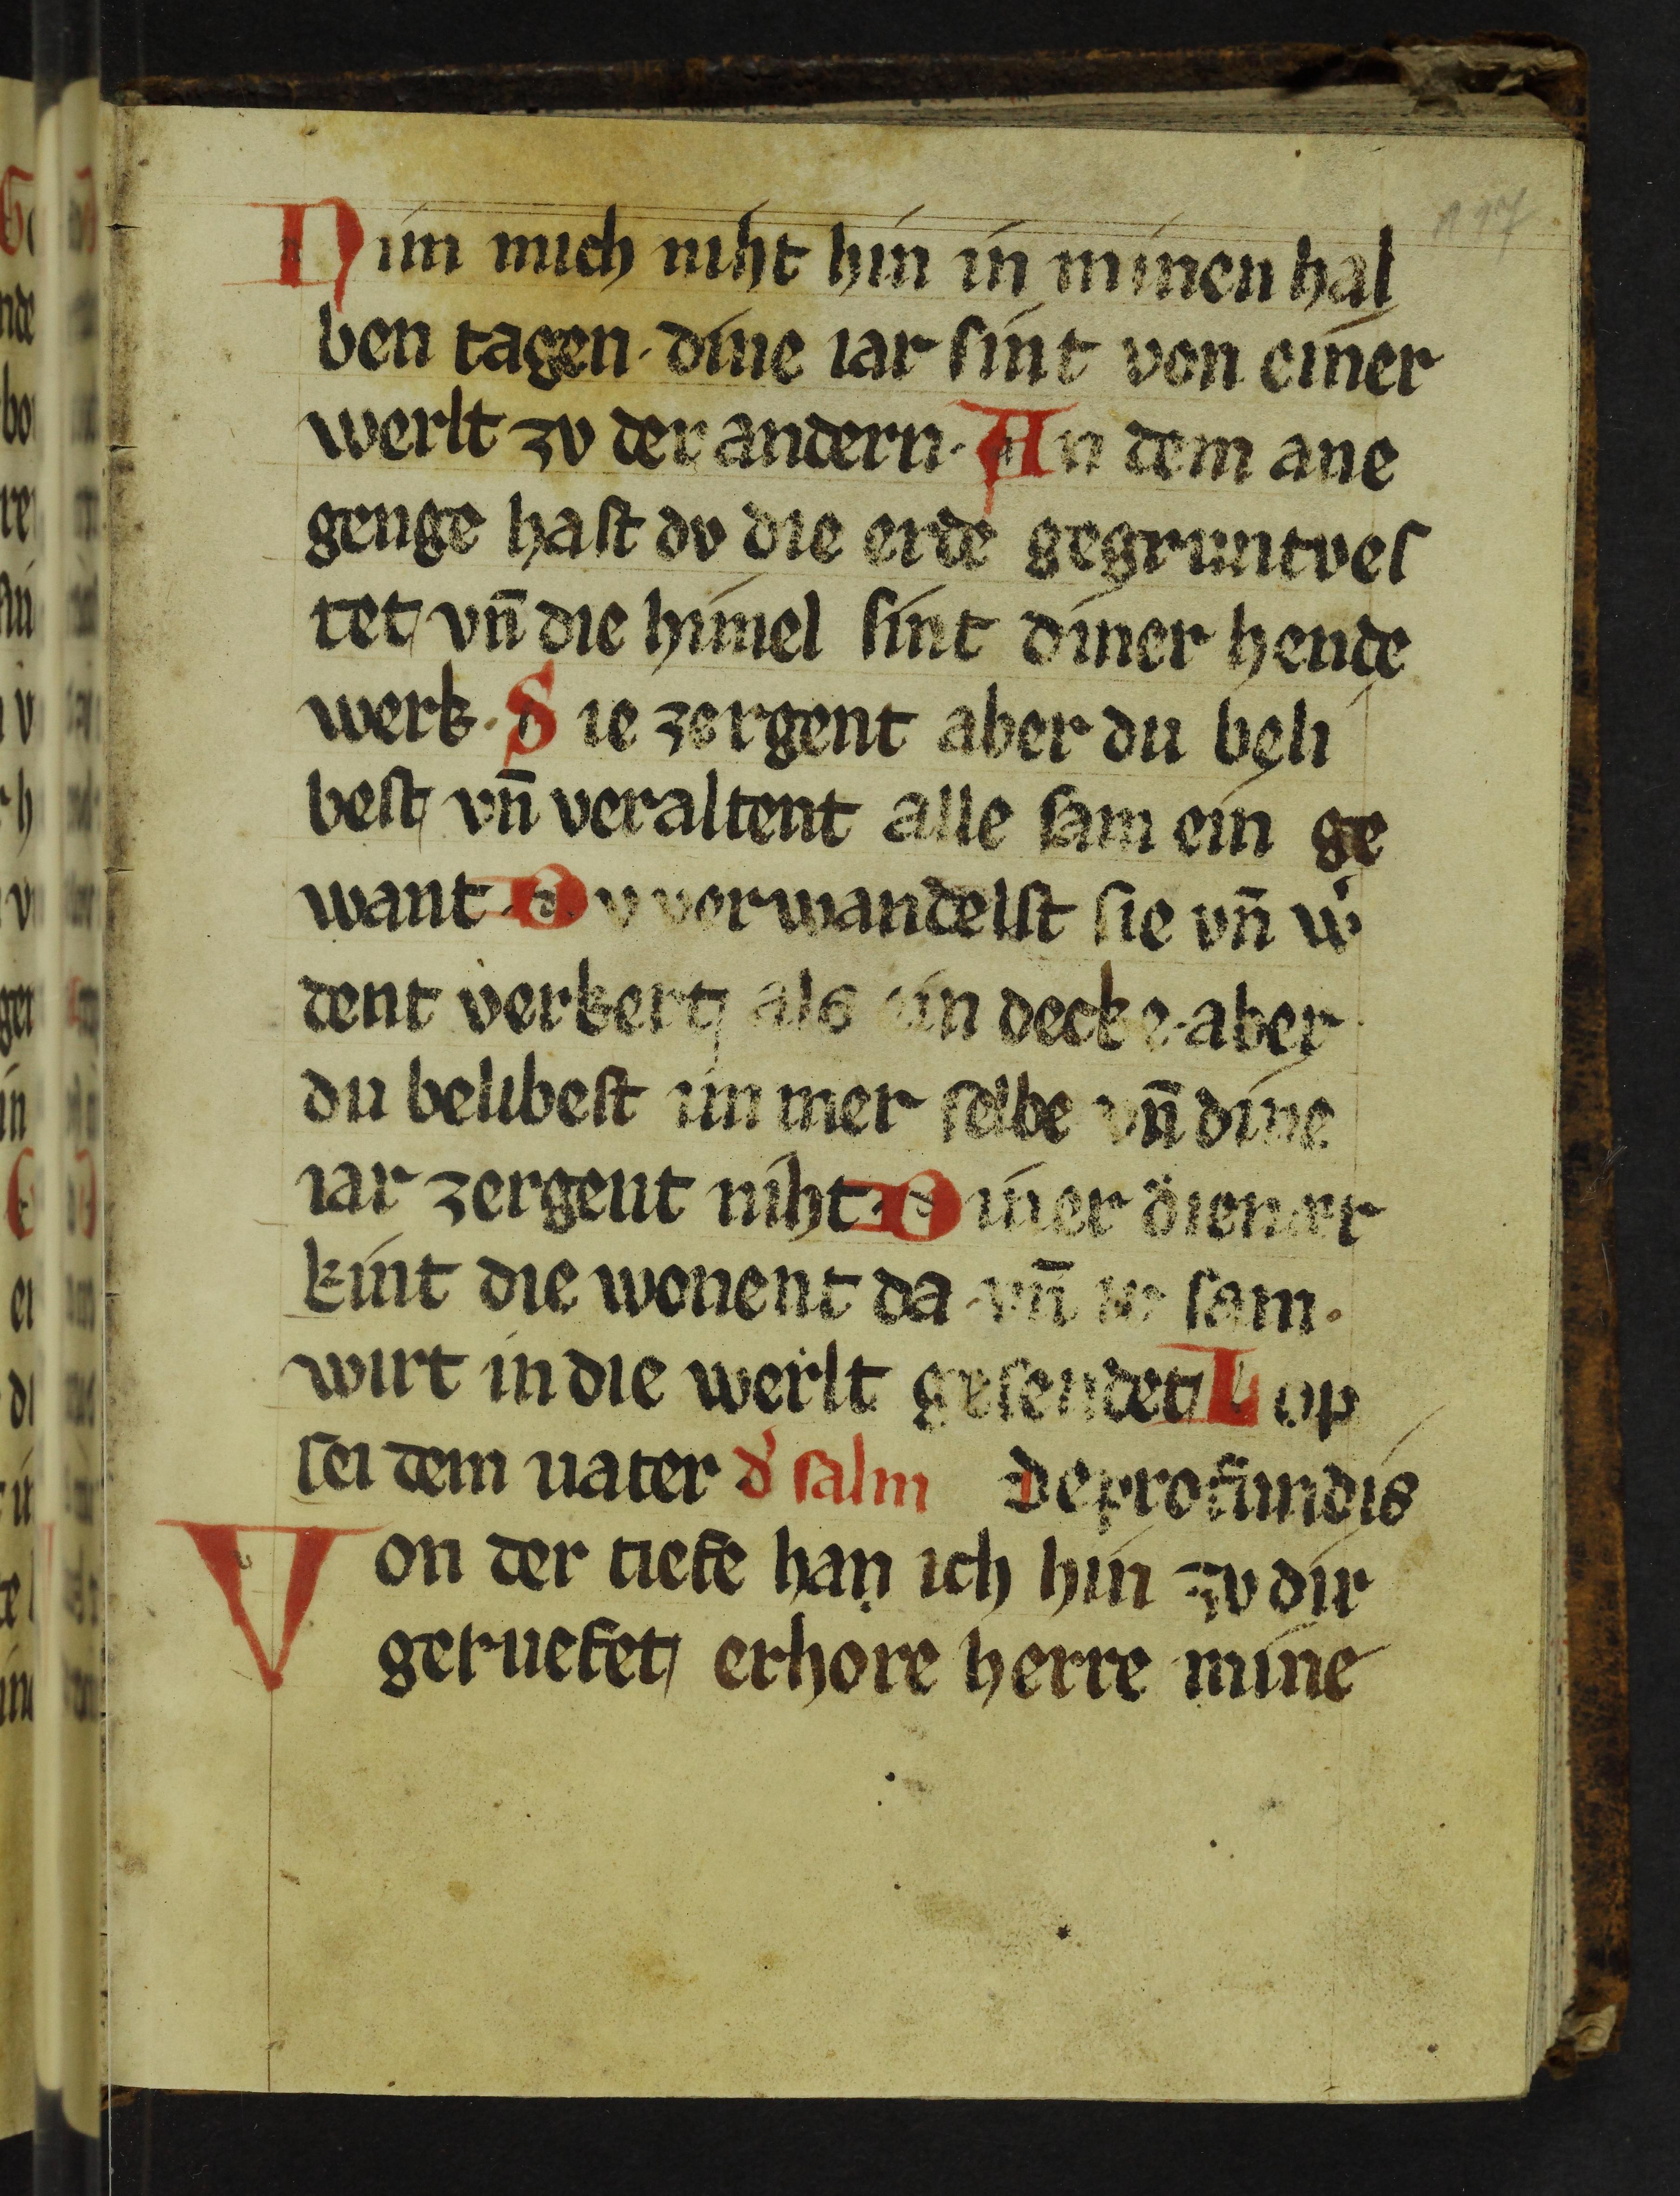 Nim mich niht hin in minen hal
ben tagen · dine iar sint von einer
werlt zv der andern · An dem ane
genge hast dv die erde gegruntves
tet / vn̄ die himel sint diner hende
werk · Sie zergent aber du beli
best / vn̄ veraltent alle sam ein ge
want · Dv verwandelst sie vn̄ w͛
dent verkert / als ein decke · aber
du belibest immer selbe vn̄ dine
iar zergent niht · Diner diener
kint die wonent da · vn̄ ir sam ·
wirt in die werlt gesendet / Lop
sei dem uater d͛ salm De profundis
Von der tiefe han ich hin zv dir
geruefet / erhore herre mine